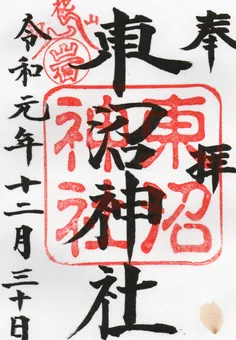 奉拝
東沼神社
東沼
神社
令和元年十二月三十日